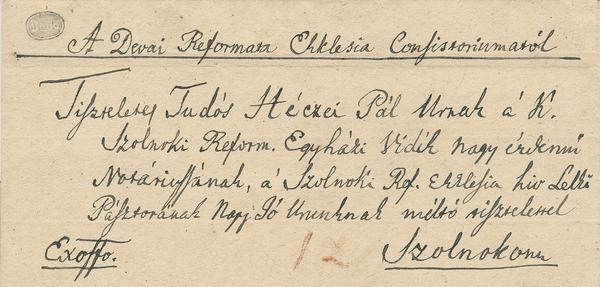 A Devai Reformata Ekklesia Consistoriumatól
Tiszteletes Tudós Héczei Pál Urnak á K.
Szolnoki Reform. Egyházi Vidék nagy érdemű
Notáriussának, á Szolnoki Ref. Ekklesia hiv Lelki
Pásztorának Nagy Jó Urunknak méltó tisztelettel
Exoffo. Szolnokonn